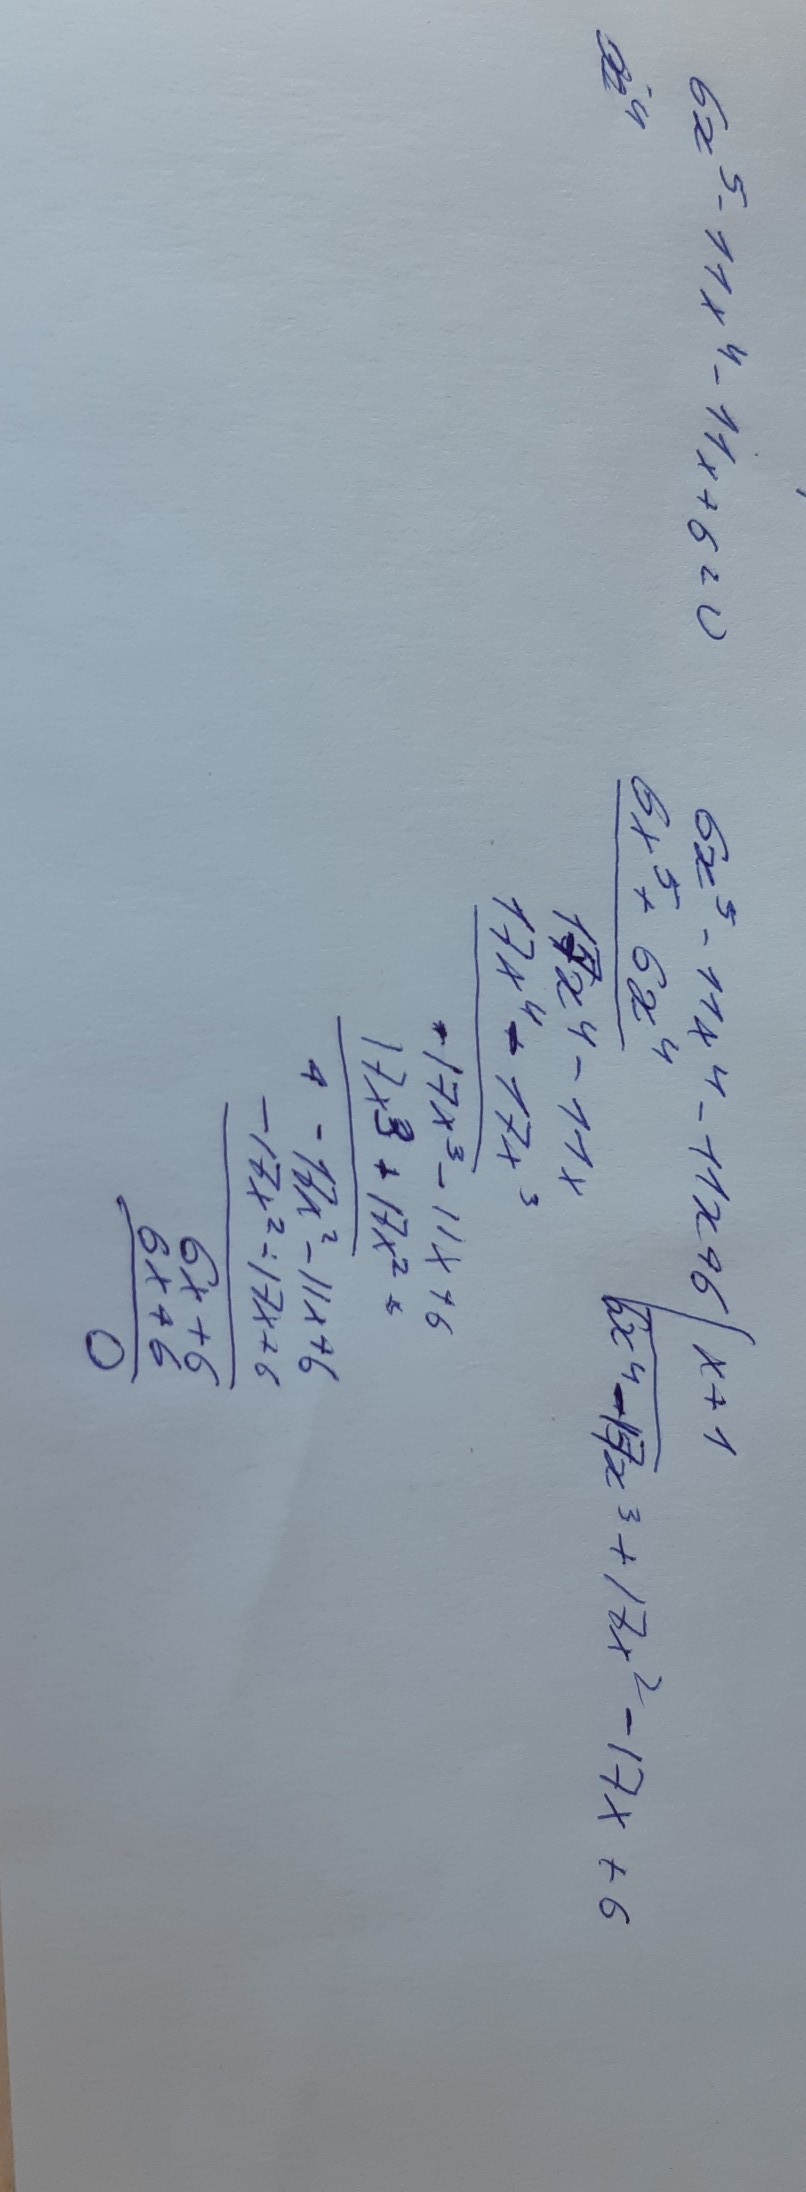 6x⁵-11x⁴-11x+6=0
6x⁵-11x⁴-11x+6 | x+1
6x⁵+6x⁴
6x⁴-17x³+17x²-17x+6
17x⁴-11x
17x⁴-17x³
-17x³-11x+6
17x³+17x²
-17x²-11x+6
-17x²-17x+6
6x+6
6x+6
0